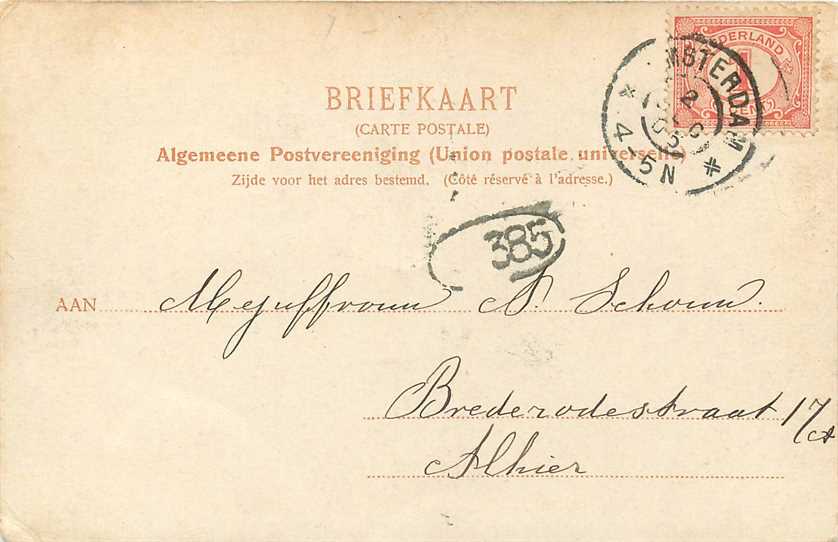 NEDERLAND
1
CENT
AMSTERDAM
2
05
4-5N
BRIEFKAART
(CARTE POSTALE)
Algemeene Postvereeniging (Union postale universelle)
Zijde voor het adres bestemd. (Côté réservé à l'adresse.)
385
AAN Mejuffrouw A. Schouw.
Brederodestraat 17/A
Alhier